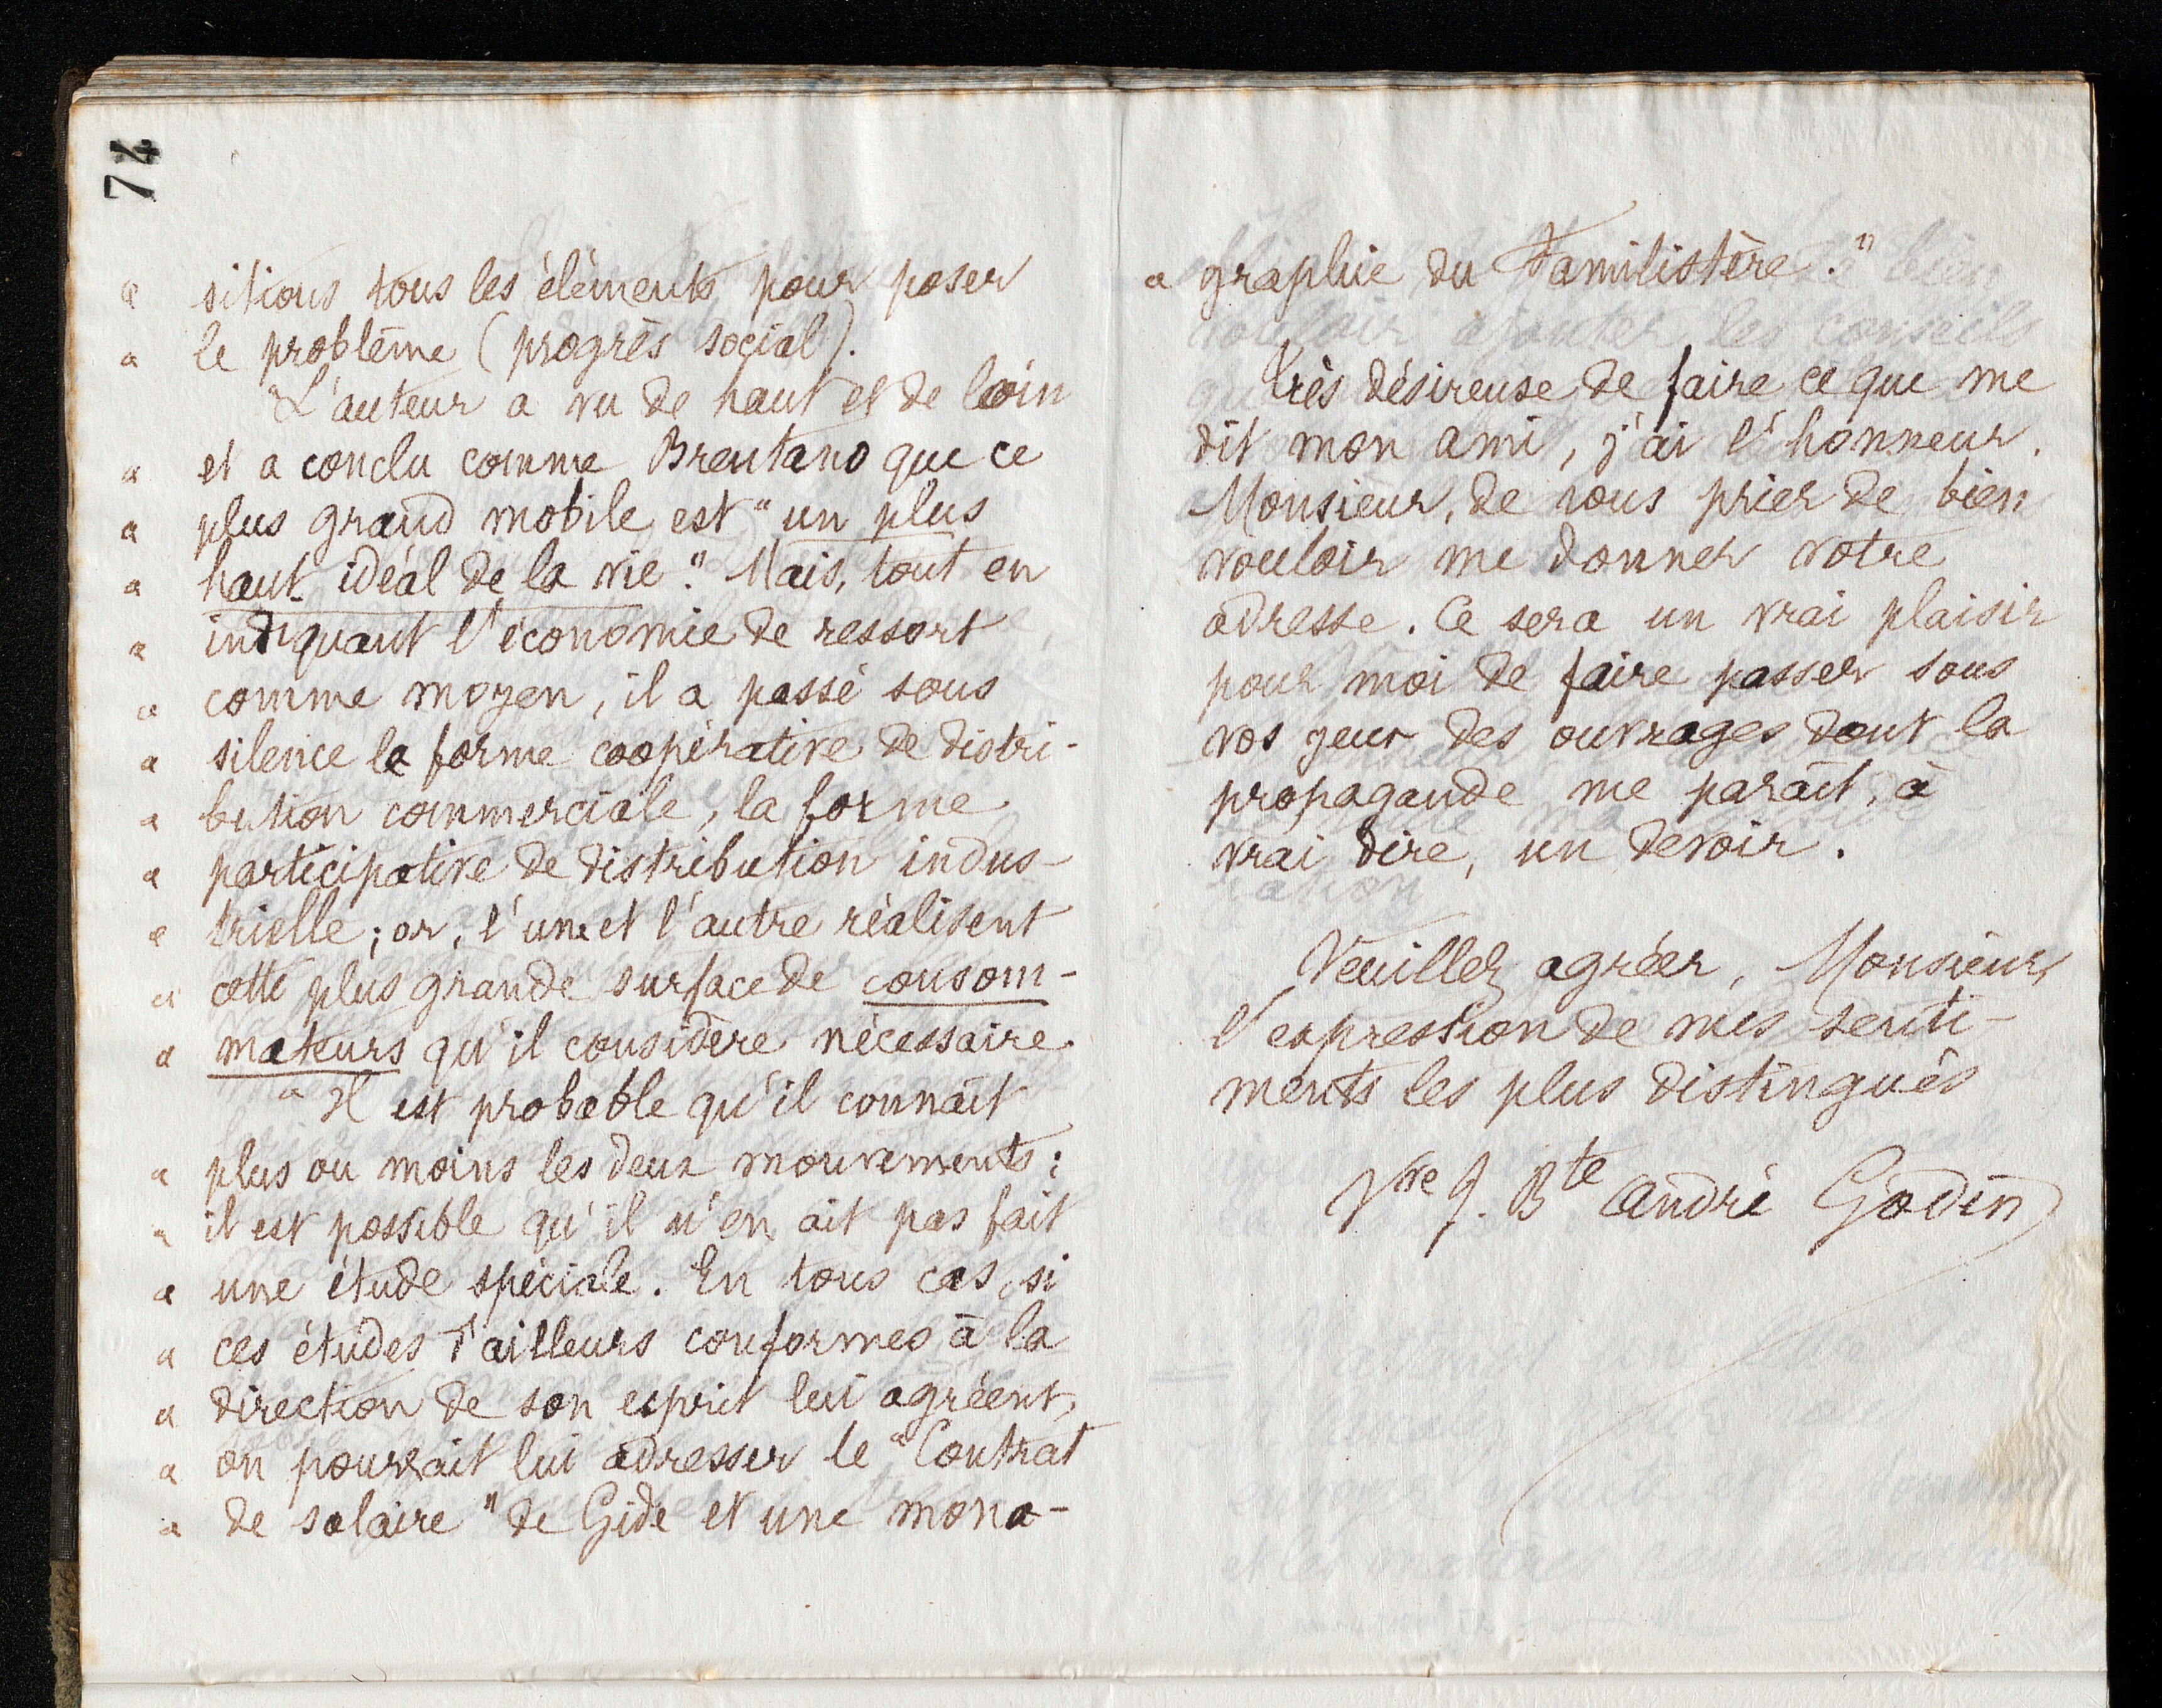 74
" sitions tous les éléments pour poser
" le problème (progrès social).
"L'auteur a vu de haut et de loin
" et a conclu comme Brentano que ce
" plus grand mobile est "un plus
" haut idéal de la vie". Mais, tout en
" indiquant l'économie de ressort
" comme moyen, il a passé sous
" silence la forme coopérative de distri-
" bution commerciale, la forme
" participative de distribution indus-
" trielle; or, l'une et l'autre réalisent
" cette plus grande surface de consom-
" mateurs qu'il considère nécessaire.
" Il est probable qu'il connaît
" plus ou moins les deux mouvements;
" il est possible qu'il n'en ait pas fait
" une étude spéciale. En tous cas, si
" ces études d'ailleurs conformes à la
" direction de son esprit lui agréent,
" on pourrait lui adresser le "Contrat
" de salaire" de Gide et une mono-
" graphie du Familistère."
Très désireuse de faire ce que me
dit mon ami, j'ai l'honneur,
Monsieur, de vous prier de bien
vouloir me donner votre
adresse. Ce sera un vrai plaisir
pour moi de faire passer sous
vos yeux des ouvrages dont la
propagande me paraît, à
vrai dire, un devoir.
Veuillez agréer, Monsieur,
l'expression de mes senti-
ments les plus distingués
Vve J. Bte André Godin